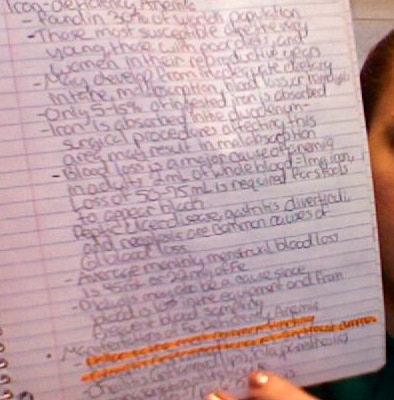 Iron-Deficiency Anemia
- Found in 30% of world's population
- Those most susceptible are the very
young, those with poor diet, and
women in their reproductive years
- May develop from inadequate dietary
intake, malabsorption, blood loss, or hemolysis
- Only 5-15% of ingested iron is absorbed
- Iron is absorbed in the duodenum-
surgical procedures affecting this
area may result in malabsorption
- Blood loss is a major cause of anemia
in adults. 2 mL of whole blood = 1mg iron,
Loss of 50-75 mL is required for stools
to appear black
Peptic ulcer disease, gastritis, diverticuli,
and neoplasia are common causes of
GI blood loss
- Average monthly menstrual blood loss
is 45 mL or 22 mg of Fe
- Dialysis may also be a cause since
blood is lost in the equipment and from
frequent blood sampling
Manifestations of Fe Anemia
- most common finding